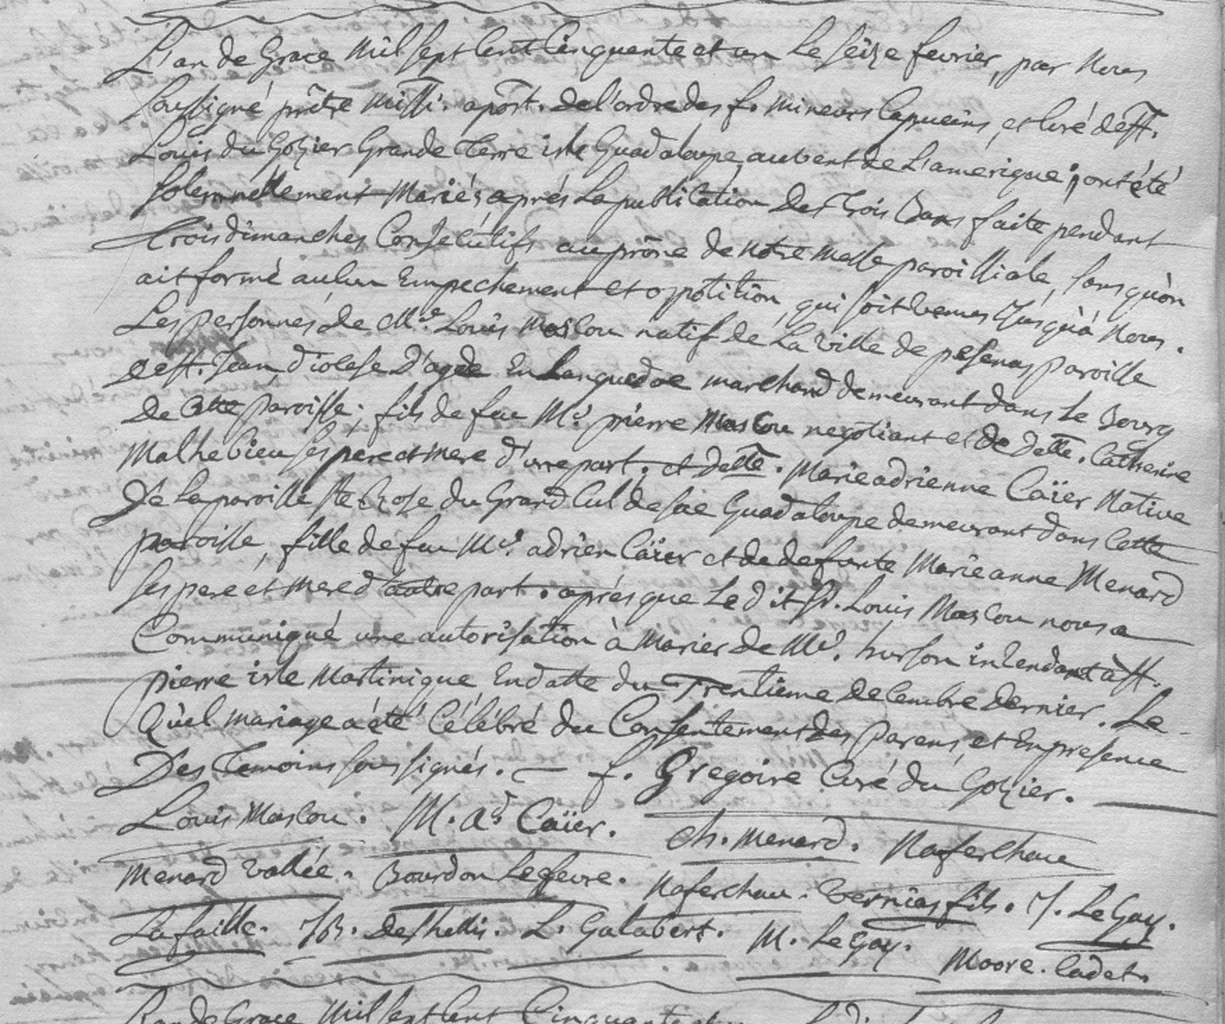 L'an de Grace mil sept cent cinquante et un le seize fevrier, par Nous
soussigné prêtre missi. apost. de l'ordre des f. mineurs capucins, et curé de st.
Louis du Gozier Grande Terre isle Guadaloupe au vent de L'amerique; ont été
solemnellement Mariés après la publication des trois Bans faite pendant
trois dimanches consecutifs au prône de notre messe paroissiale, sans qu'on
ait formé aucun Empechement et opposition, qui soit venus jusqu'à Nous.
Les personnes de Mre. Louis Mascou natif de la ville de pesenas paroisse
de st. Jean diocese D'agde En Languedoc marchand demeurant dans le Bourg
de Cette paroisse; fils de feu Mr. pierre Mascou negotiant et de Delle. Catherine
Malhebieu ses pere et mere d'une part; et Delle. Marie adrienne Caïer Native
De la paroisse ste Rose du Grand Cul de sac Guadaloupe demeurant dans Cette
paroisse, fille de feu Mr. adrien Caïer et de defunte Marie anne Menard
ses pere et mere d'autre part. après que le dit Sr. Louis Mascou nous a
Communiqué une autorisation à Marier de Mr. hurson intendant à st.
pierre isle Martinique En datte du Trentieme decembre dernier. Le
Quel mariage a été Célébré du Consentement des parens et En presence
Des Temoins soussignés. — f. Gregoire Curé du Gozier.
Louis Mascou. M. ad. Caïer. Ch. Menard. Naferchau
Menard Vallée. Bourdon Lefevre. Naferchau. Vernias fils. J. Le Gay.
Lafaille. JB. L. Galabert. M. Le Gay. Moore. Cadet.
L'an de Grace Mil sept cent Cinquante et un